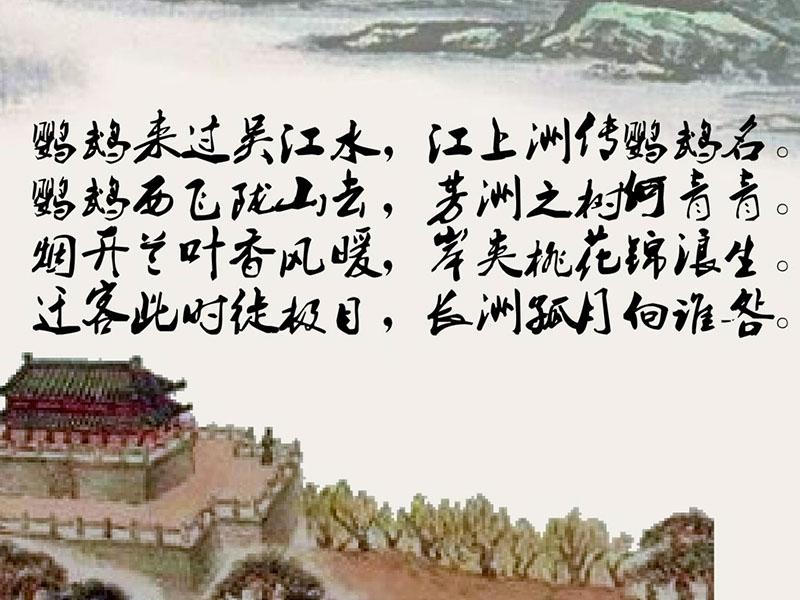 鹦鹉来过吴江水，江上洲传鹦鹉名。
鹦鹉西飞陇山去，芳洲之树何青青。
烟开兰叶香风暖，岸夹桃花锦浪生。
迁客此时徒极目，长洲孤月向谁明。